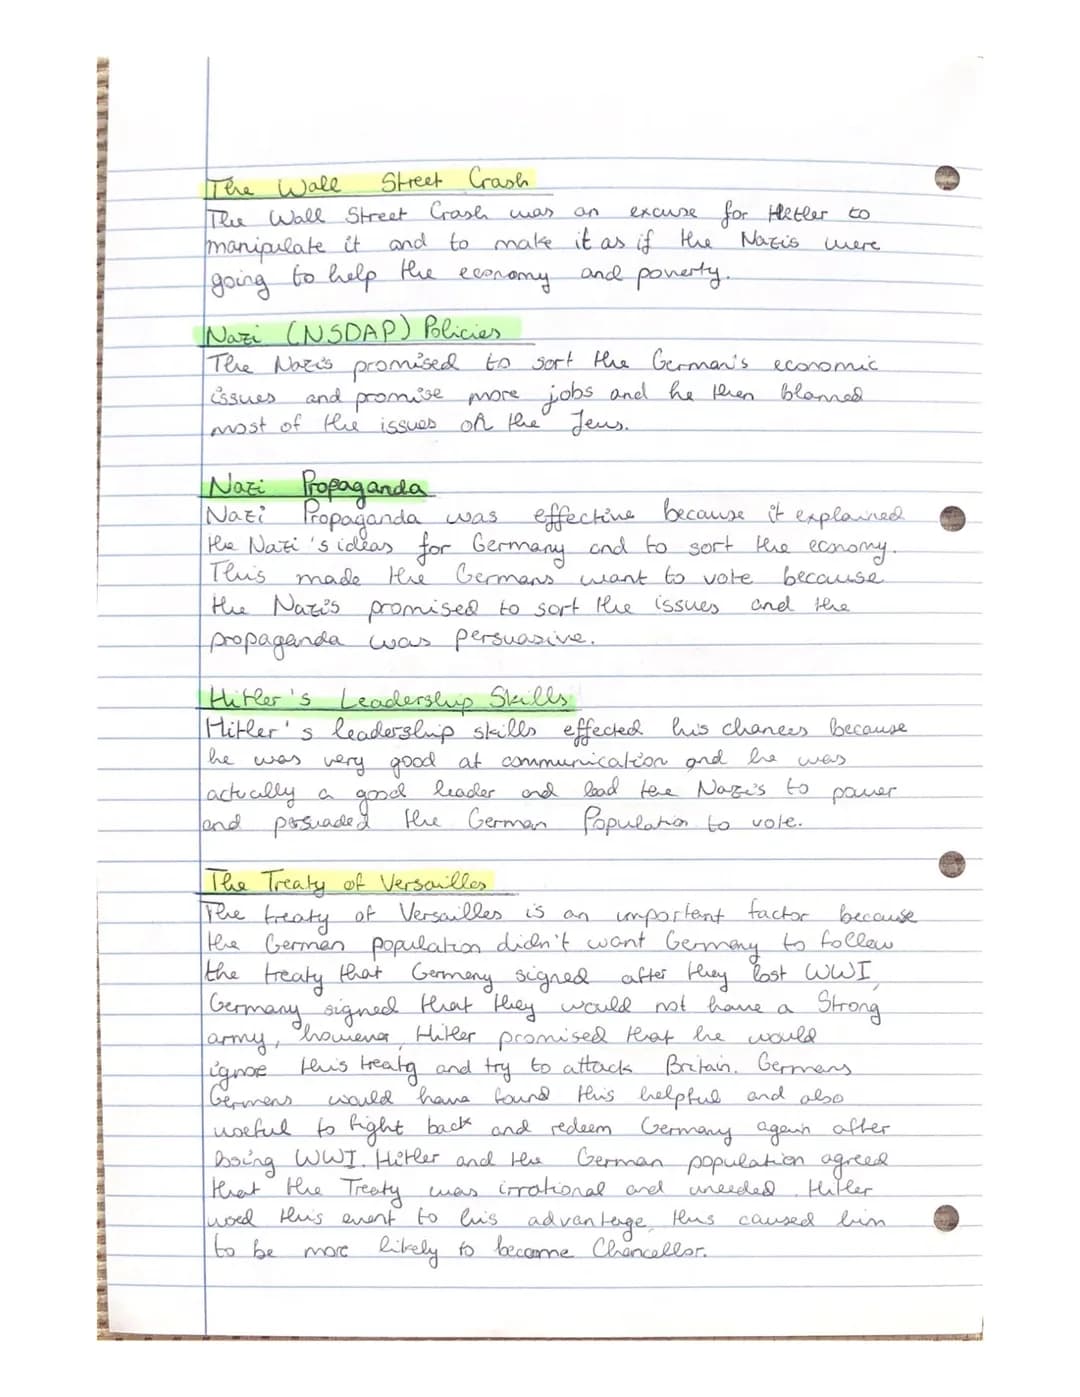 The Wall Street Crash
The Wall Street Crash was an excuse for Hitler to
manipulate it and to make it as if the Nazis were
going to help the economy and poverty.
Nazi (NSDAP) Policies
The Nazis promised to sort the German's economic
issues and promise more jobs and he then blamed
most of the issues on the Jews.
Nazi Propaganda
Nazi Propaganda was effective because it explained
the Nazi's ideas for Germany and to sort the ecnomy.
This made the Germans want to vote because
the Nazi's promised to sort the issues and the
propaganda was persuasive.
Hitler's Leadership Skills
Hitler's leadership skills effected his chances because
he was very good at communication and he was
actually a good leader and lead the Nazi's to power
and persuaded the German Population to vote.
The Treaty of Versailles
The treaty of Versailles is an important factor because
the German population didn't want Germany to follow
the treaty that Germany signed after they lost WWI,
Germany signed that they would not have a Strong
army, however, Hitler promised that he would
ignoe this treaty and try to attack Britain. Germans
Germans would have found this helpful and also
useful to fight back and redeem Germany again after
losing WWI. Hitler and the German population agreed
that the Treaty was irrational and uneeded. Hitler
used this event to his advantage, thus caused him
to be more likely to become Chancellor.